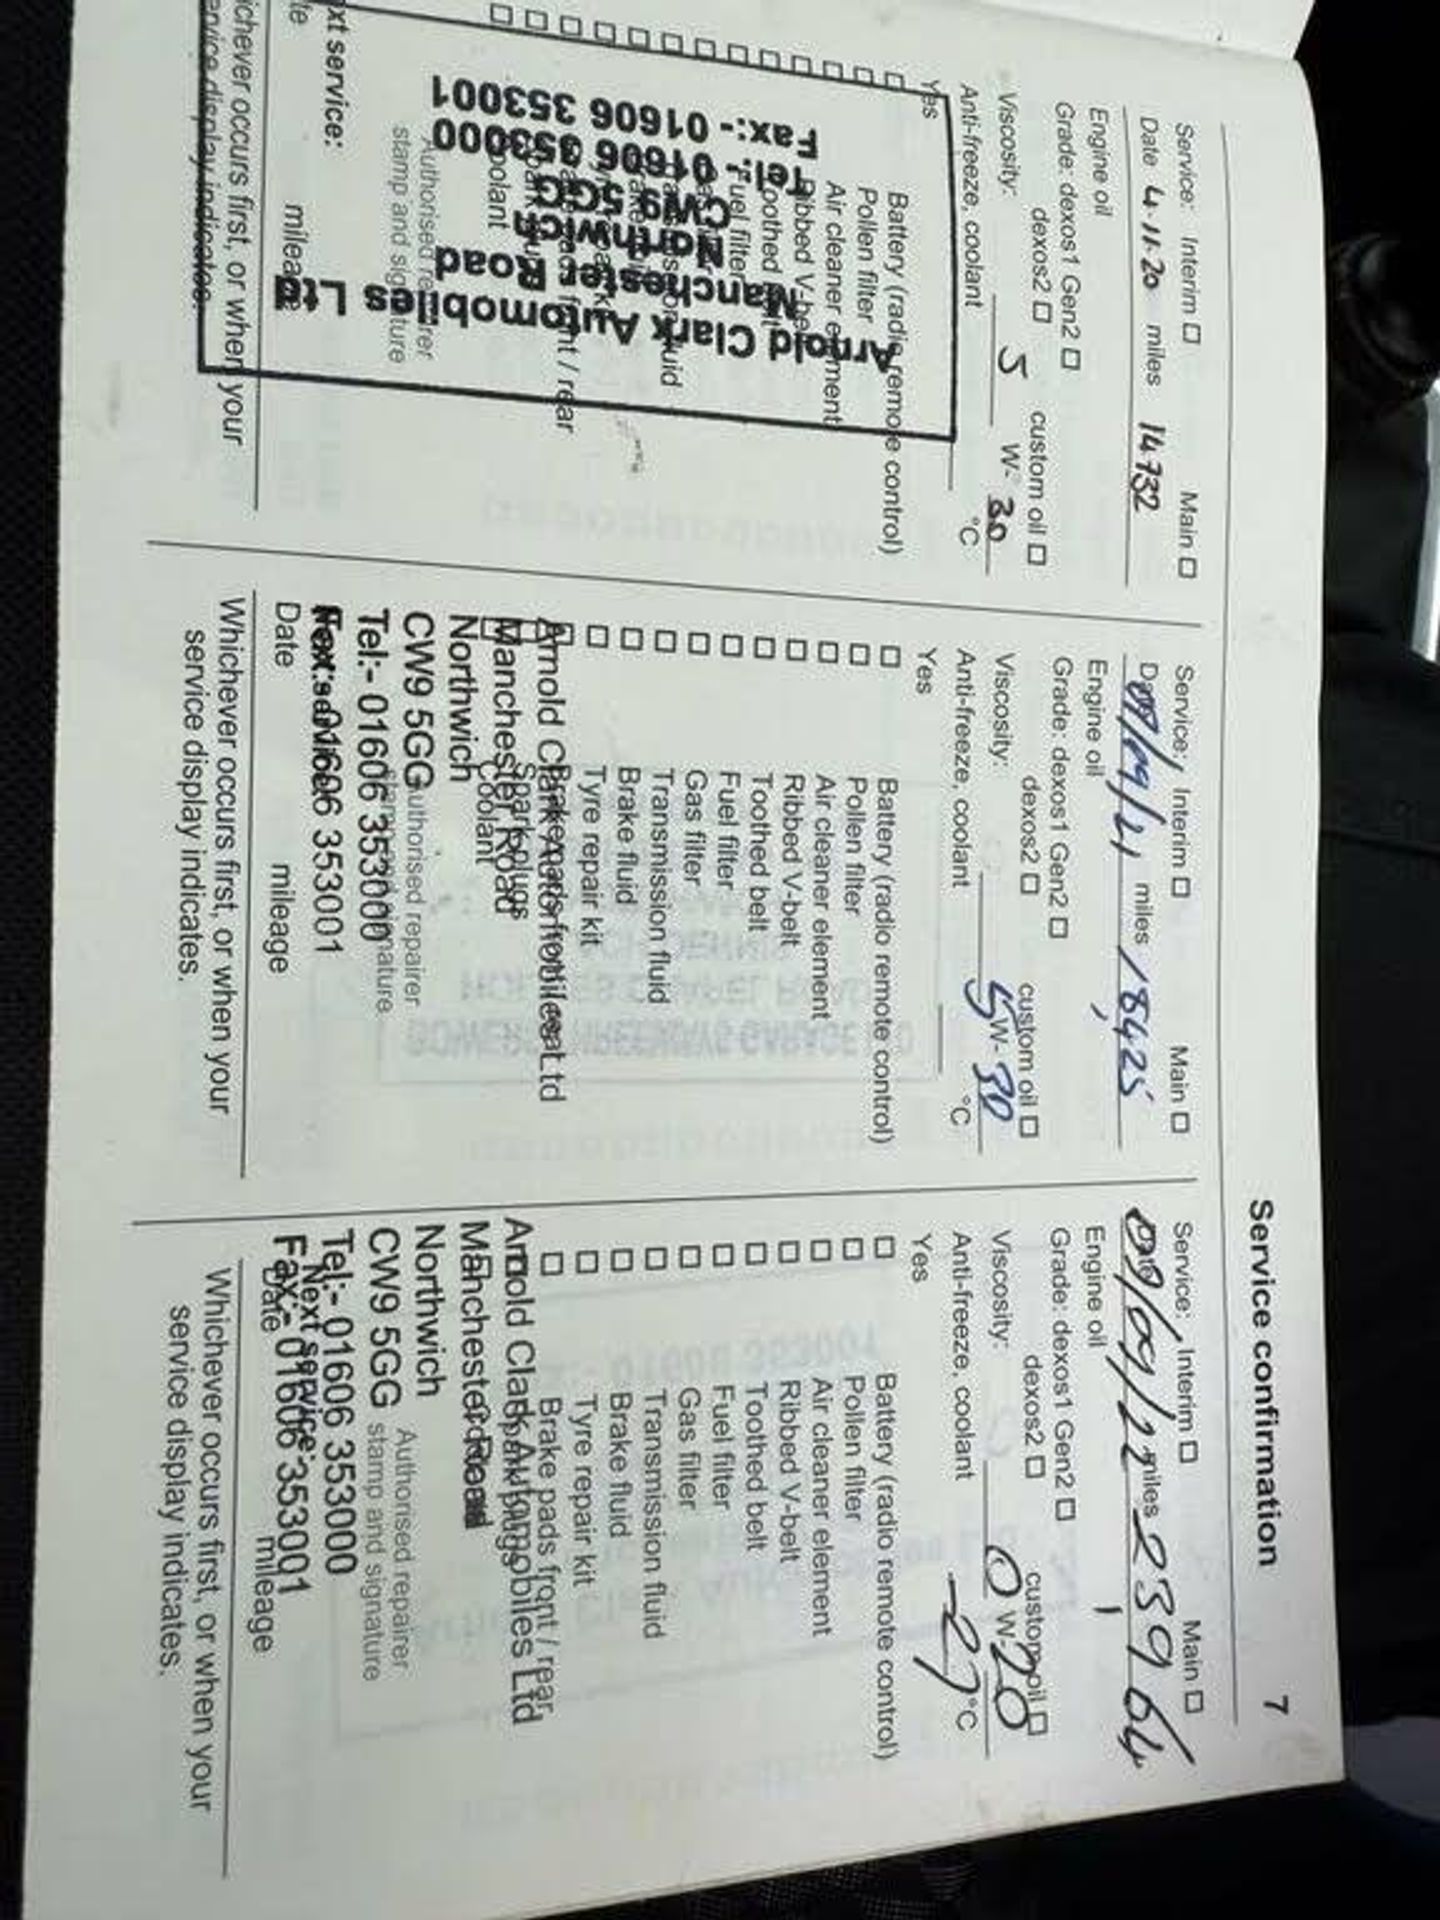 Service confirmation 7
Service: Interim ☐ Main ☐
Date 4.11.20 miles 14732
Engine oil
Grade: dexos1 Gen2 ☐
dexos2 ☐ custom oil ☐
Viscosity: 5 W- 30
Anti-freeze, coolant °C
Yes
Battery (radio remote control)
Pollen filter
Air cleaner element
Ribbed V-belt
Toothed
Fuel filter
Arnold Clark Automobiles Ltd
Manchester Road
Northwich
CW9 5GG
Tel:- 01606 353000
Fax:- 01606 353001
front / rear
Authorised repairer
stamp and signature
ext service:
mileage
ichever occurs first, or when your
ervice display indicates.
Service: Interim ☐ Main ☐
miles 18425
Engine oil
Grade: dexos1 Gen2 ☐
dexos2 ☐ custom oil ☐
Viscosity: 5 W- 30
Anti-freeze, coolant °C
Yes
☐ Battery (radio remote control)
☐ Pollen filter
☐ Air cleaner element
☐ Ribbed V-belt
☐ Toothed belt
☐ Fuel filter
☐ Gas filter
☐ Transmission fluid
☐ Brake fluid
☐ Tyre repair kit
☐ Brake pads front / rear
☐ Spark plugs
☐ Coolant
Arnold Clark Automobiles Ltd
Manchester Road
Northwich
CW9 5GG
Tel:- 01606 353000
Fax:- 01606 353001
Authorised repairer
stamp and signature
Next service:
Date mileage
Whichever occurs first, or when your
service display indicates.
Service: Interim ☐ Main ☐
09/09/22 miles 23964
Engine oil
Grade: dexos1 Gen2 ☐
dexos2 ☐ custom oil ☐
Viscosity: 0 W- 20
Anti-freeze, coolant -27 °C
Yes
☐ Battery (radio remote control)
☐ Pollen filter
☐ Air cleaner element
☐ Ribbed V-belt
☐ Toothed belt
☐ Fuel filter
☐ Gas filter
☐ Transmission fluid
☐ Brake fluid
☐ Tyre repair kit
☐ Brake pads front / rear
☐ Spark plugs
☐ Coolant
Arnold Clark Automobiles Ltd
Manchester Road
Northwich
CW9 5GG
Tel:- 01606 353000
Fax:- 01606 353001
Authorised repairer
stamp and signature
Next service:
Date mileage
Whichever occurs first, or when your
service display indicates.